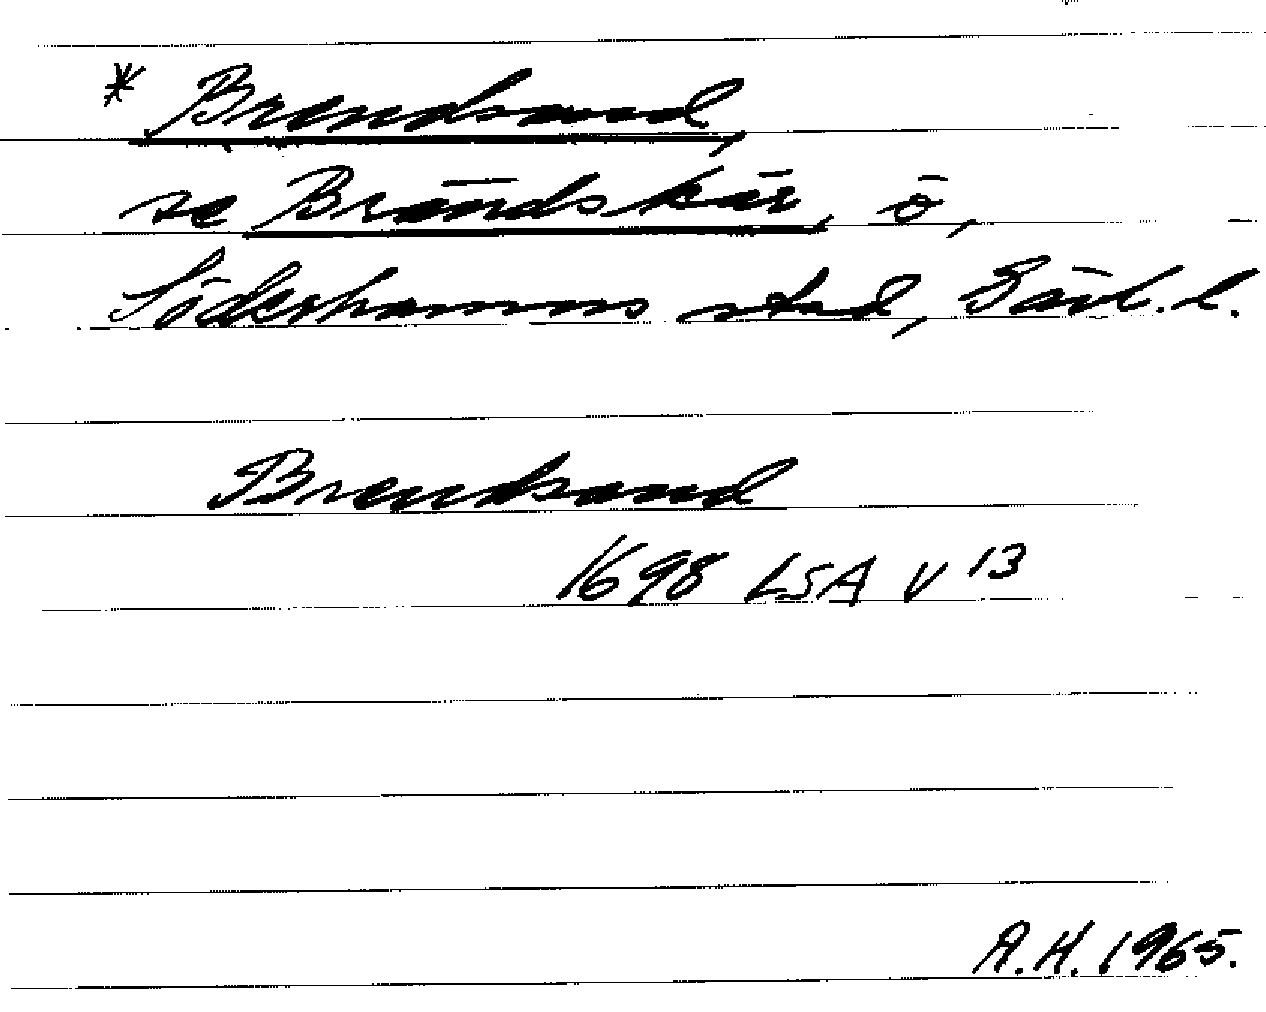 * Brendsand,
se Brändskär, ö,
Söderhamns stad, Gävl. l.
Brendsand
1698 LSA V 13
A.H. 1965.